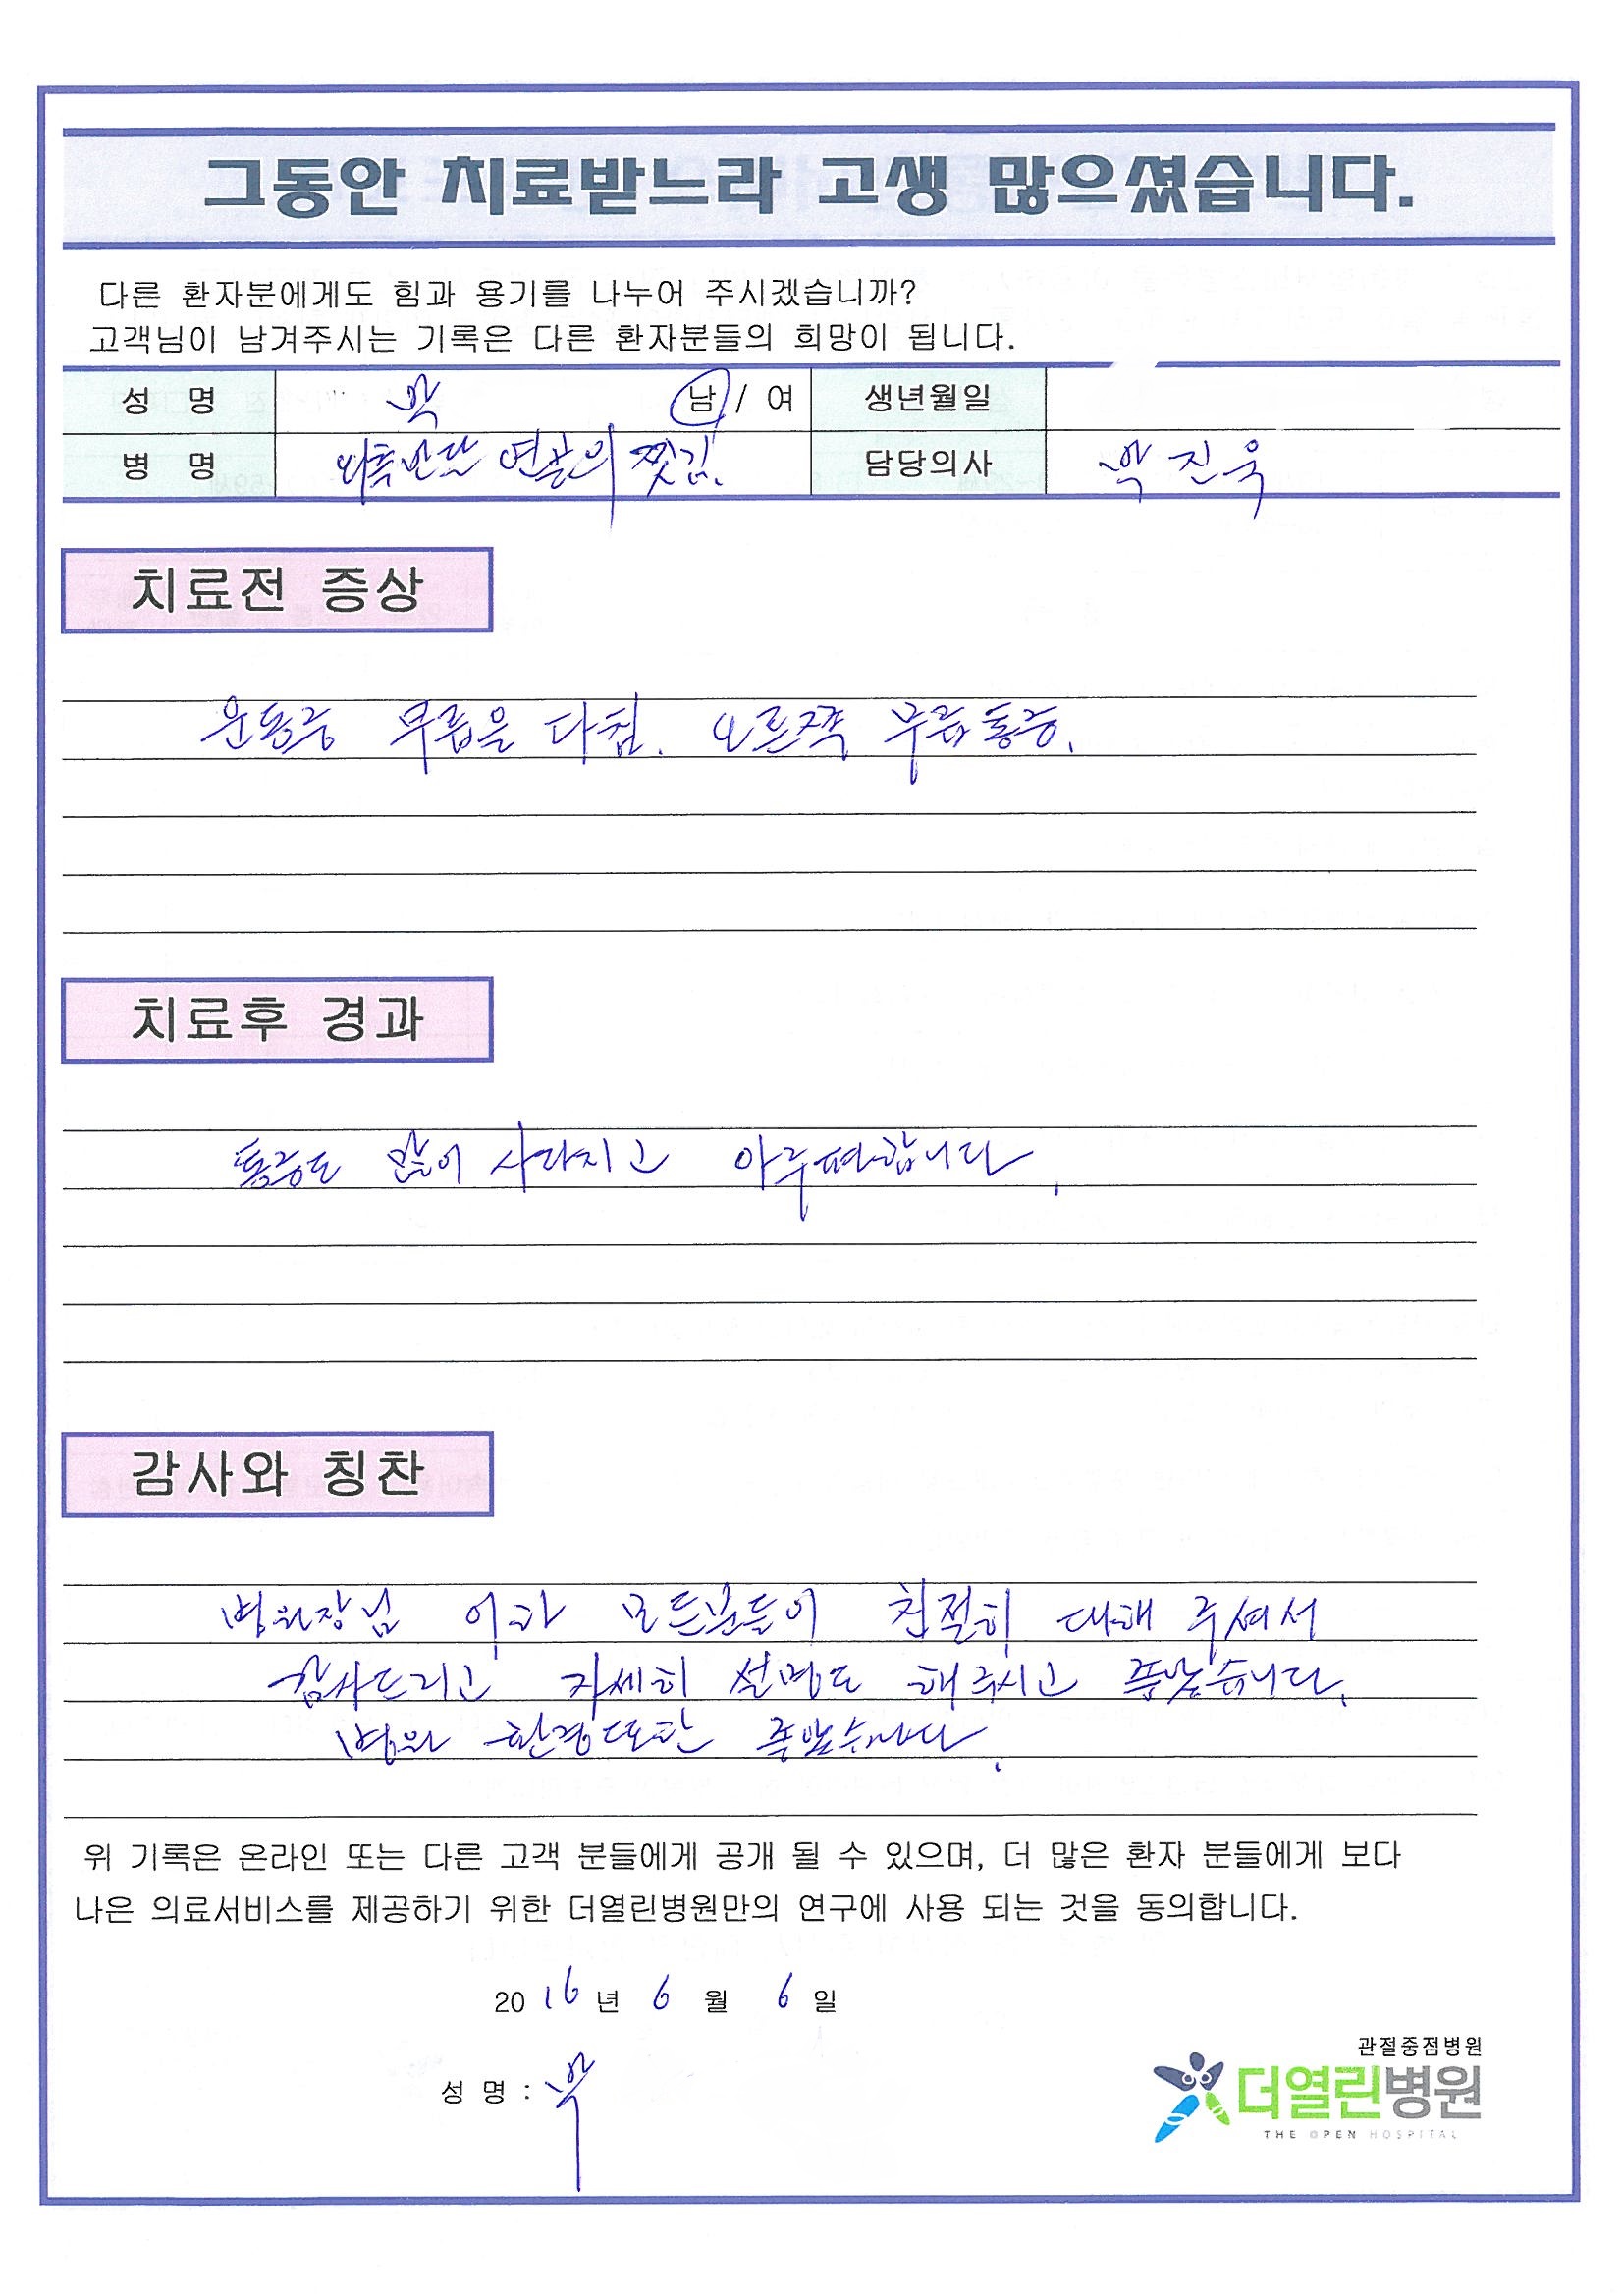 그동안 치료받느라 고생 많으셨습니다.
다른 환자분에게도 힘과 용기를 나누어 주시겠습니까?
고객님이 남겨주시는 기록은 다른 환자분들의 희망이 됩니다.
성 명 박 남 / 여 생년월일
병 명 외측반달 연골의 찢김. 담당의사 박진욱
치료전 증상
운동중 무릎을 다침. 오른쪽 무릎통증.
치료후 경과
통증도 많이 사라지고 아주편합니다.
감사와 칭찬
병원장님 이하 모든분들이 친절히 대해 주셔서
감사드리고 자세히 설명도 해주시고 좋았습니다.
병원 환경또한 좋았습니다.
위 기록은 온라인 또는 다른 고객 분들에게 공개 될 수 있으며, 더 많은 환자 분들에게 보다
나은 의료서비스를 제공하기 위한 더열린병원만의 연구에 사용 되는 것을 동의합니다.
2016 년 6 월 6 일
성 명 : 박
관절중점병원
더열린병원
THE OPEN HOSPITAL